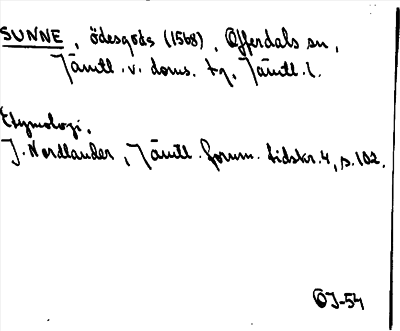 SUNNE, ödesgods (1568), Offerdals sn,
Jämtl. v. doms. tg, Jämtl. l.
Etymologi.
J. Nordlander, Jämtl. fornm. tidskr. 4, s. 102.
ÖJ-54